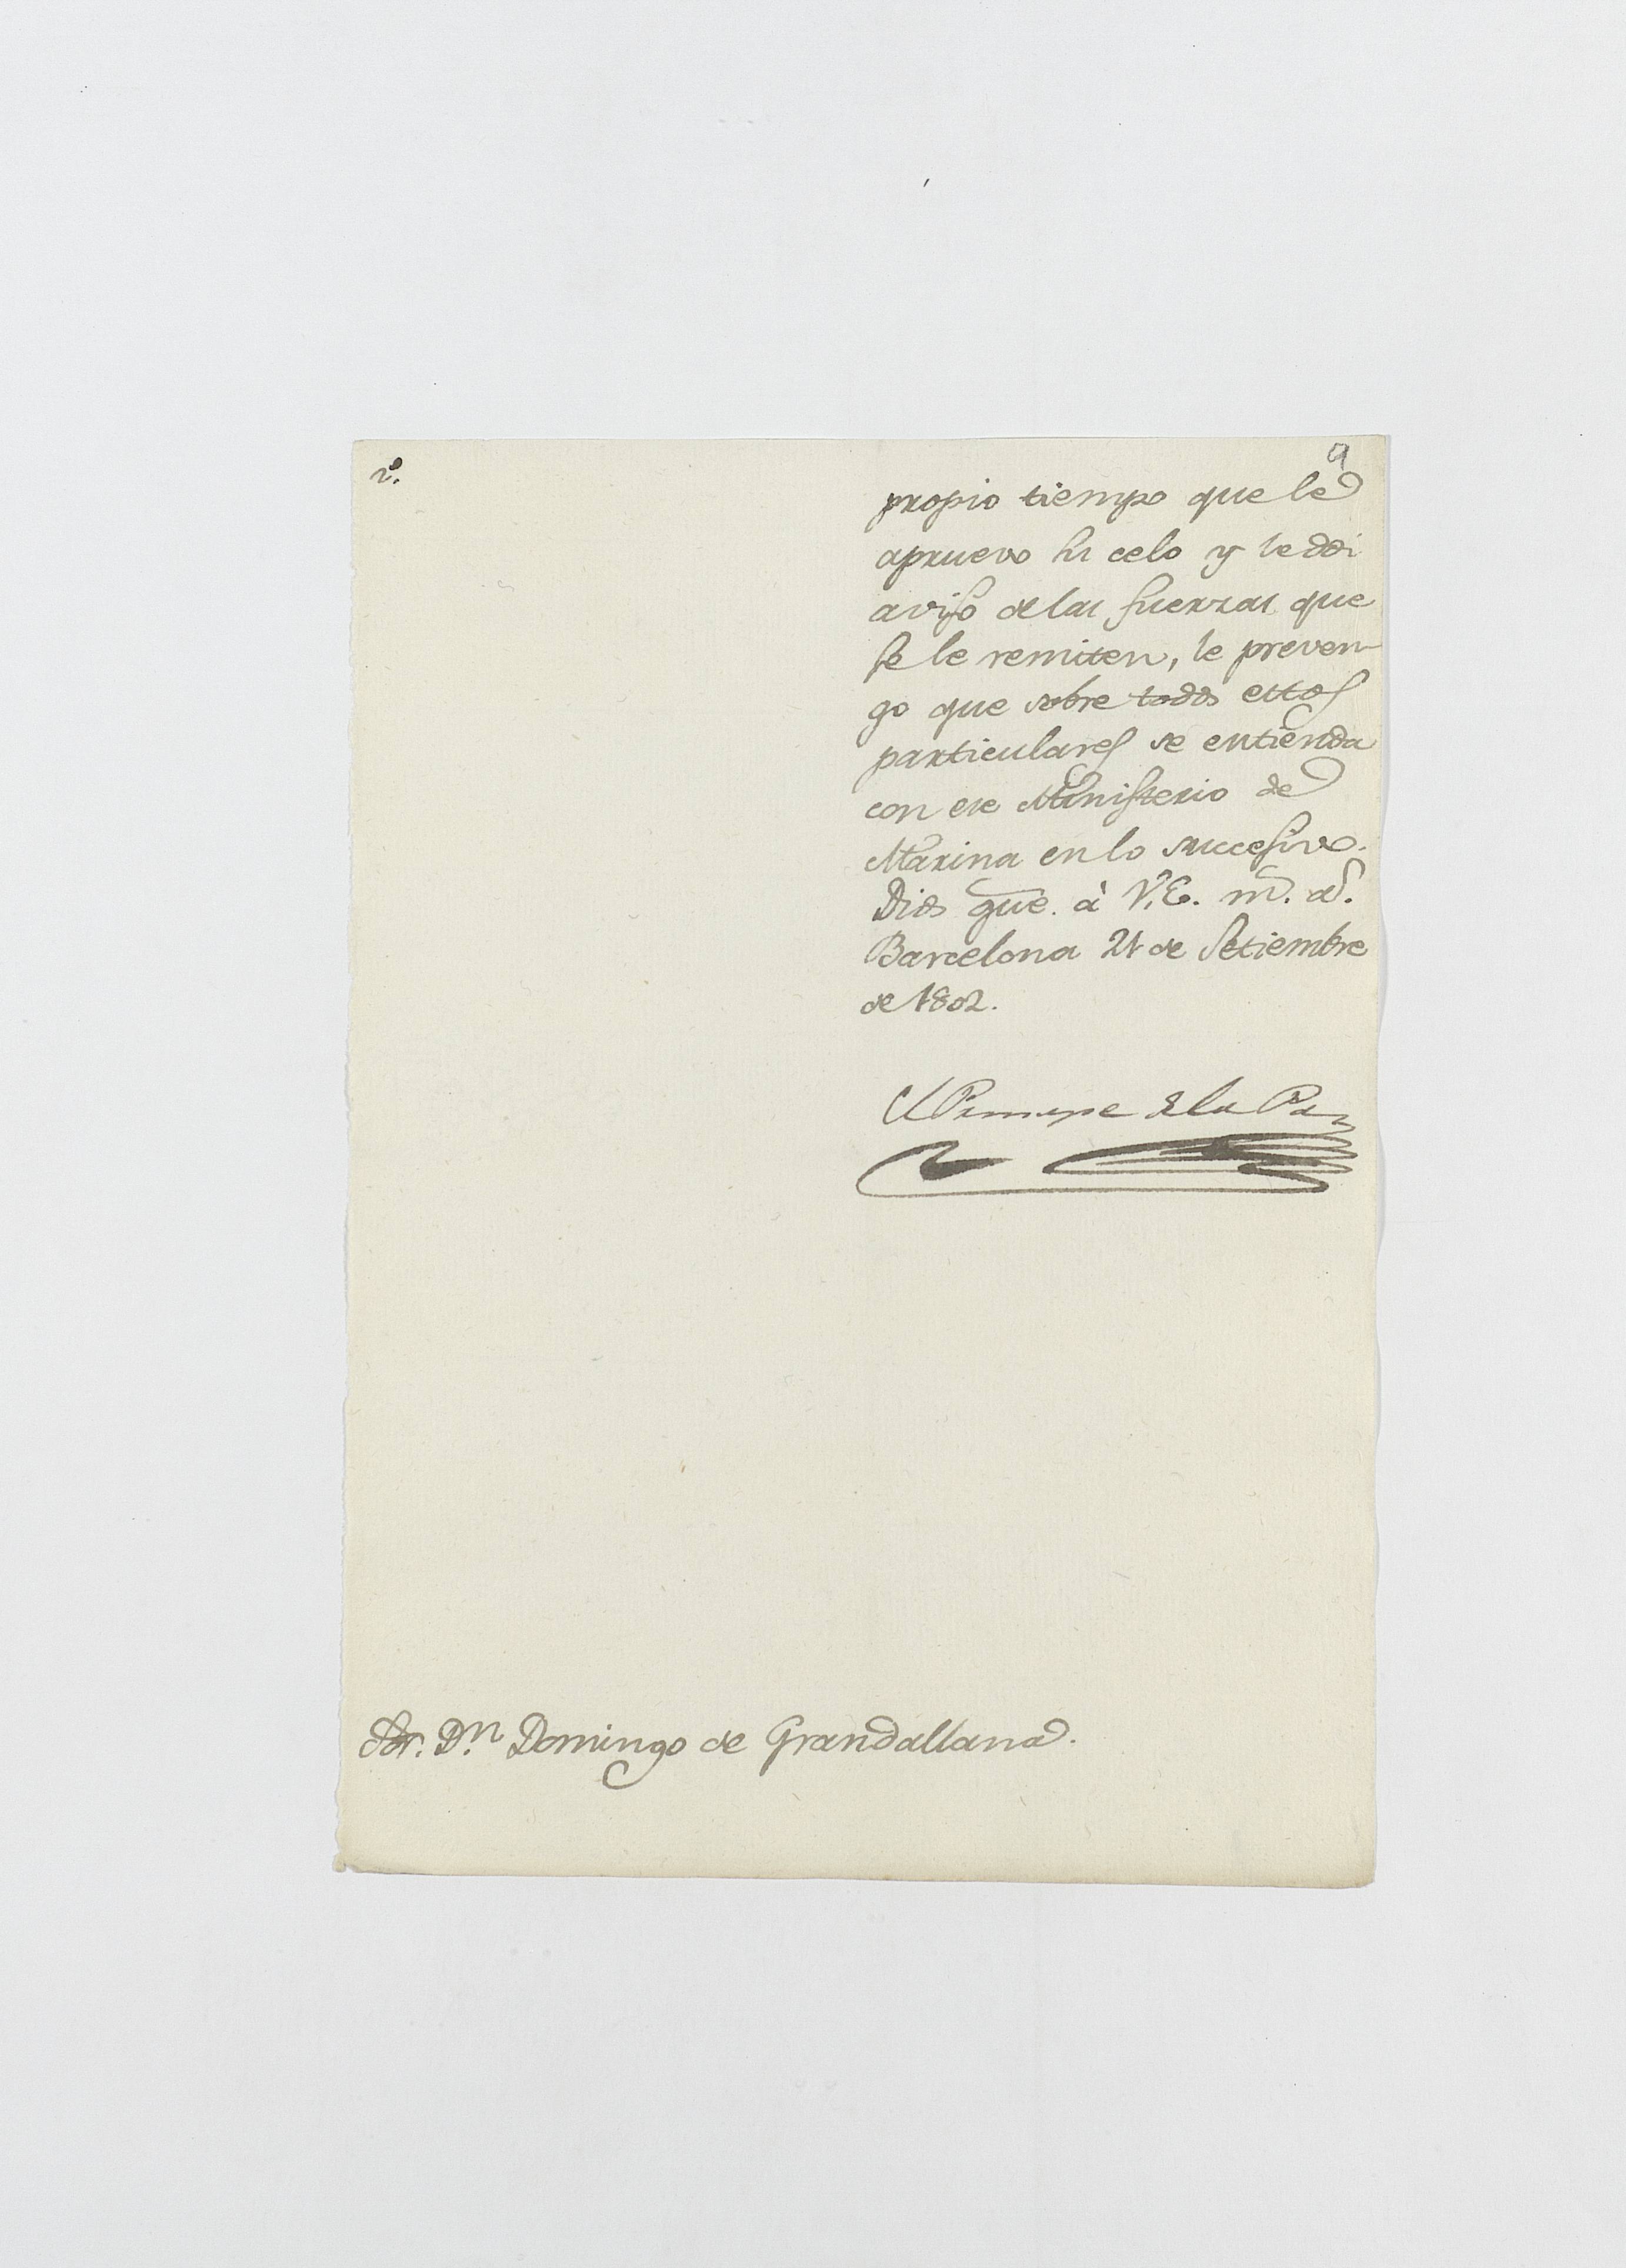 2º.
9
propio tiempo que le
apruevo su celo y le doi
aviso de las fuerzas que
se le remiten, le preven-
go que sobre todos estos
particulares se entienda
con ese Ministerio de
Marina en lo succesivo.
Dios gue. à V.E. ms. as.
Barcelona 21 de Setiembre
de 1802.
El Principe de la Paz
Sor. Dn. Domingo de Grandallana.